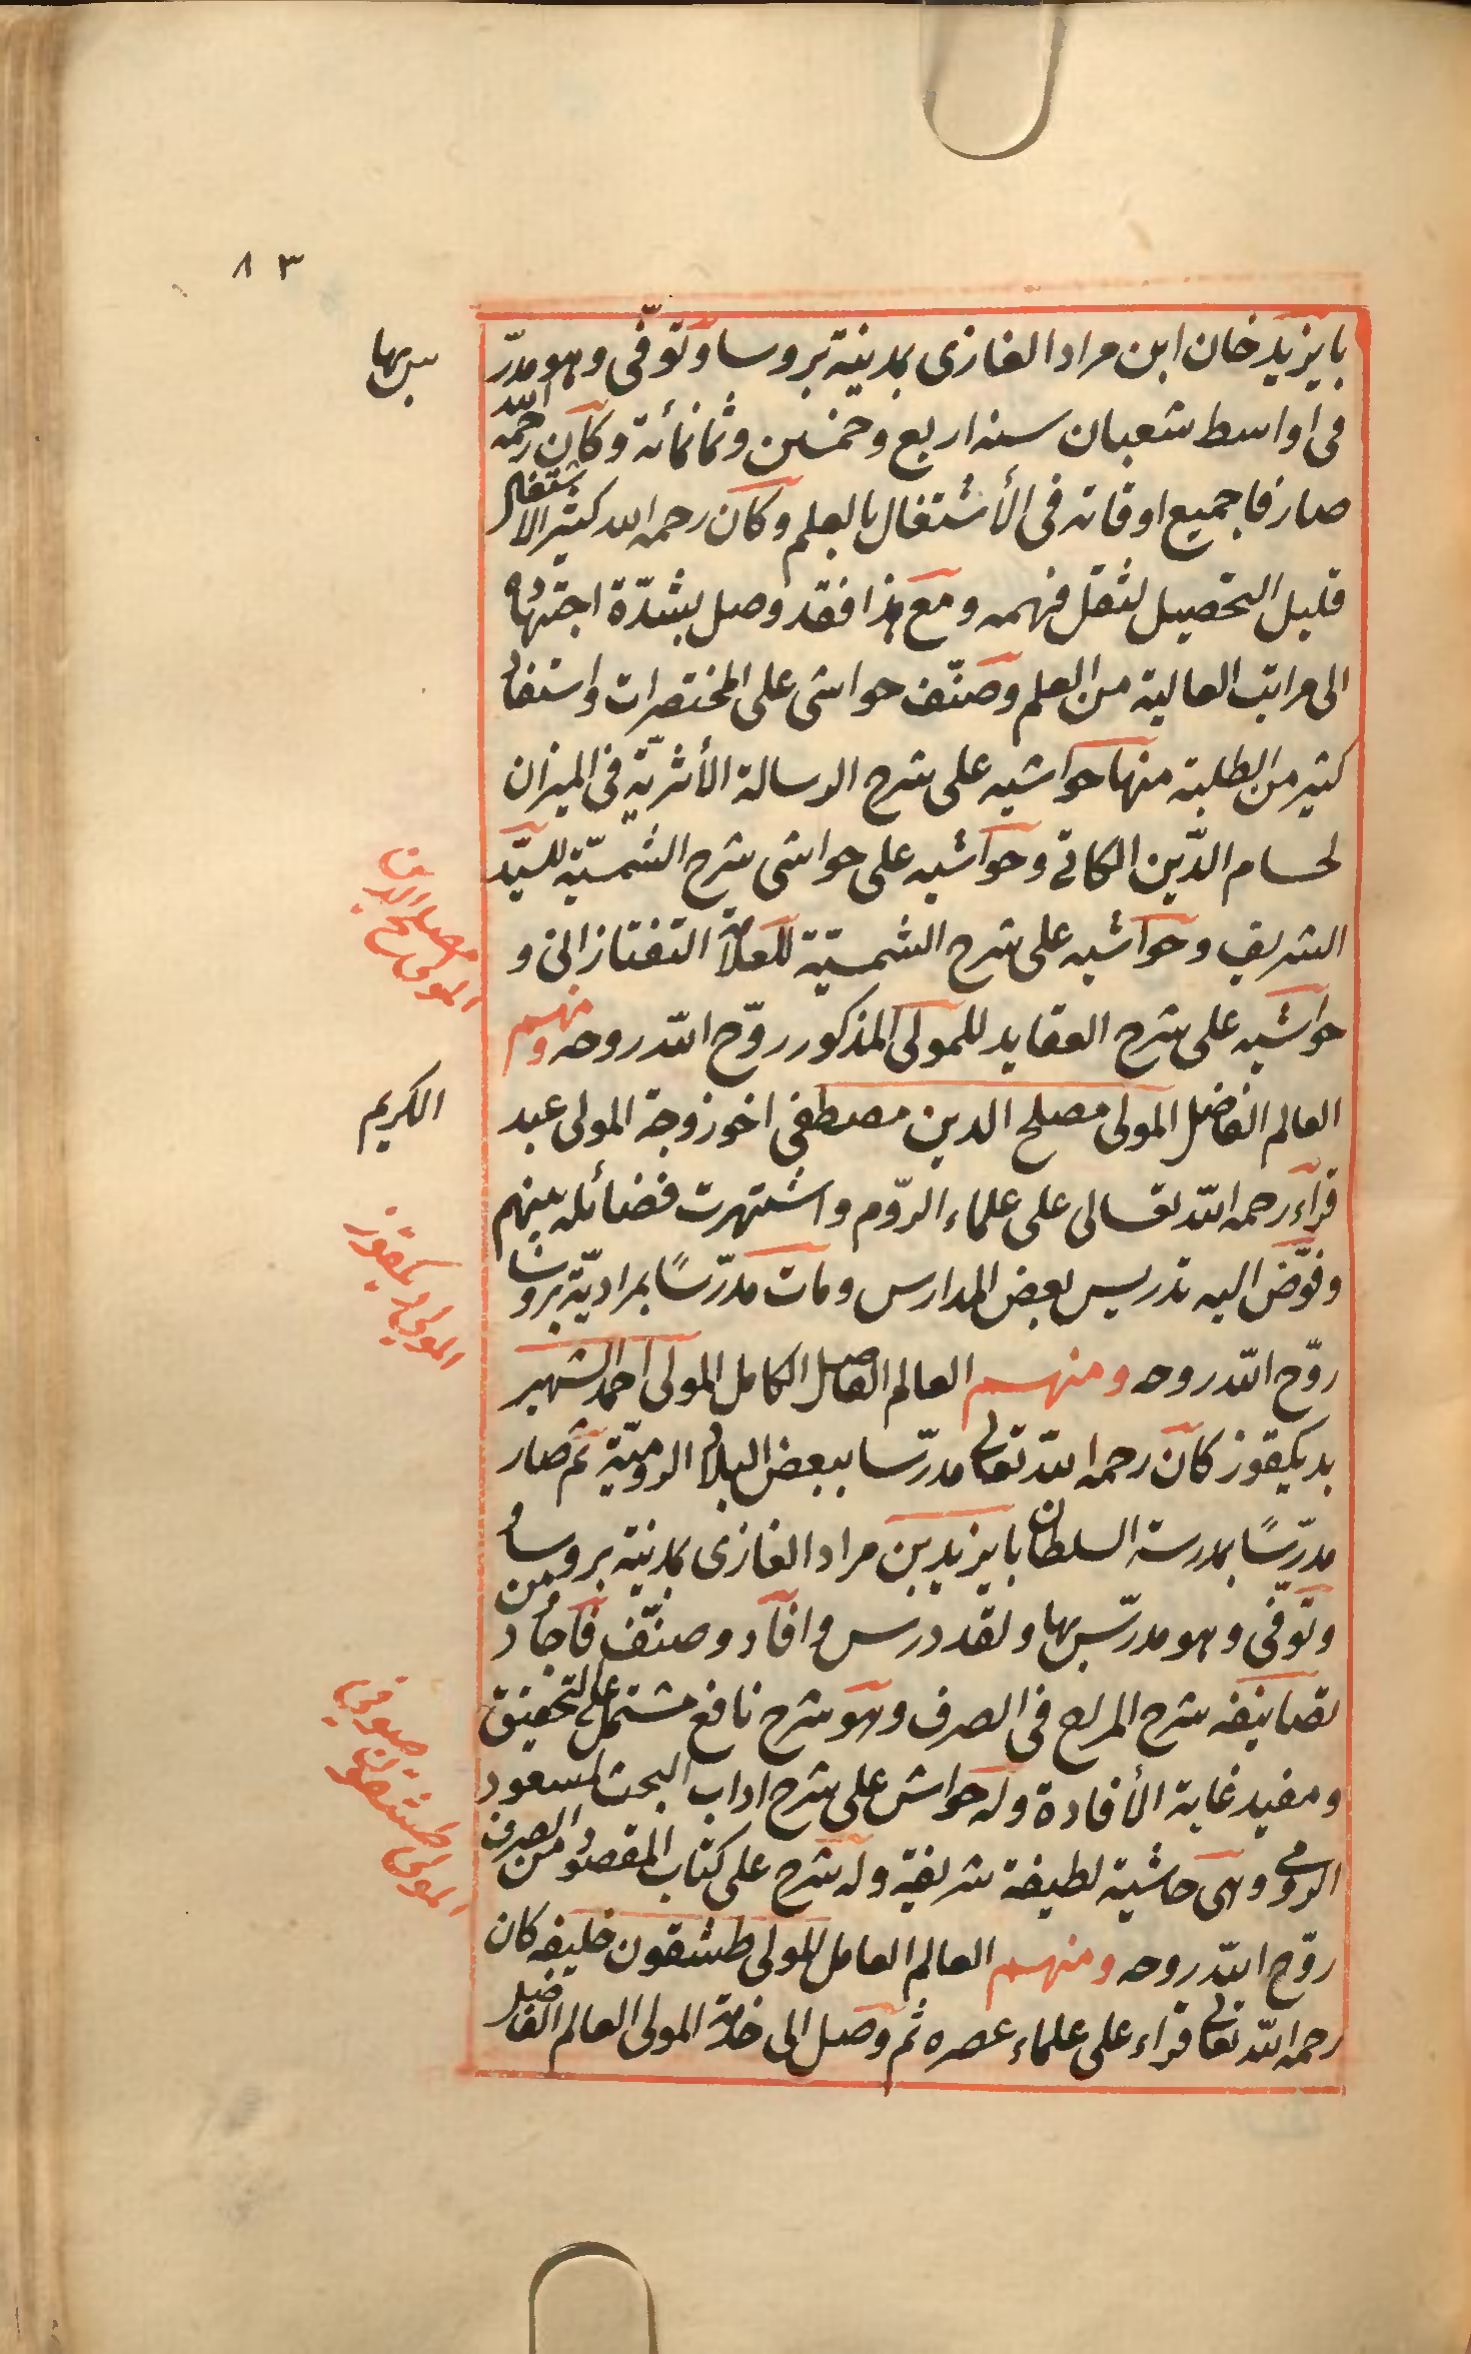 ٨٣
بايزيد خان ابن مراد الغازى بمدينة بروسا وتوفّى وهو مدرّ
س بها
فى اواسط شعبان سنه اربع وخمسين وثمانمأئة وكان رحمه الله
صارفا جميع اوقاته فى الأشتغال بالعلم وكان رحمه الله كثير الاشتغال
قليل التحصيل لثقل فهمه ومع هذا فقد وصل بشدّة اجتهاده
الى مراتب العالية من العلم وصنّف حواشى على المختصرات واستفاد
كثير من الطلبة منها حواشيه على شرح الرسالة الأثريّة فى الميزان
لحسام الدّين الكاتى وحواشيه على حواشى شرح الشمسيّة للسيّد
الشريف وحواشيه على شرح الشمسيّة للعلامة التفتازانى و
المولى مصلح الدين
حواشيه على شرح العقايد للمولى المذكور روّح الله روحه ومنهم
العالم الفاضل المولى مصلح الدين مصطفى اخو زوجة المولى عبد
الكريم
قرأء رحمه الله تعالى على علماء الرّوم واشتهرت فضائله بينهم
وفوّض اليه تدريس بعض المدارس ومات مدرّسًا بمراديّة بروسا
المولى ديكقوز
روّح الله روحه ومنهم العالم الفاضل الكامل المولى احمد الشهير
بديكقوز كان رحمه الله تعالى مدرّسا ببعض البلاد الروميّة ثم صار
مدرّسًا بمدرسة السلطان بايزيد بن مراد الغازى بمدينة بروسا
وتوفّى وهو مدرّس بها ولقد درس وافاد وصنّف فأجاد ومن
تصانيفه شرح المراح فى الصرف وهو شرح نافع مشتمل على التحقيق
ومفيد غاية الأفادة وله حواش على شرح اداب البحث لمسعود
الرومى وهى حاشية لطيفة شريفة وله شرح على كتاب المقصود من الصرف
المولى طشقون صوفى
روّح الله روحه ومنهم العالم العامل المولى طشقون خليفه كان
رحمه الله تعالى قراء على علماء عصره ثم وصل الى خدمة المولى العالم الفاضل